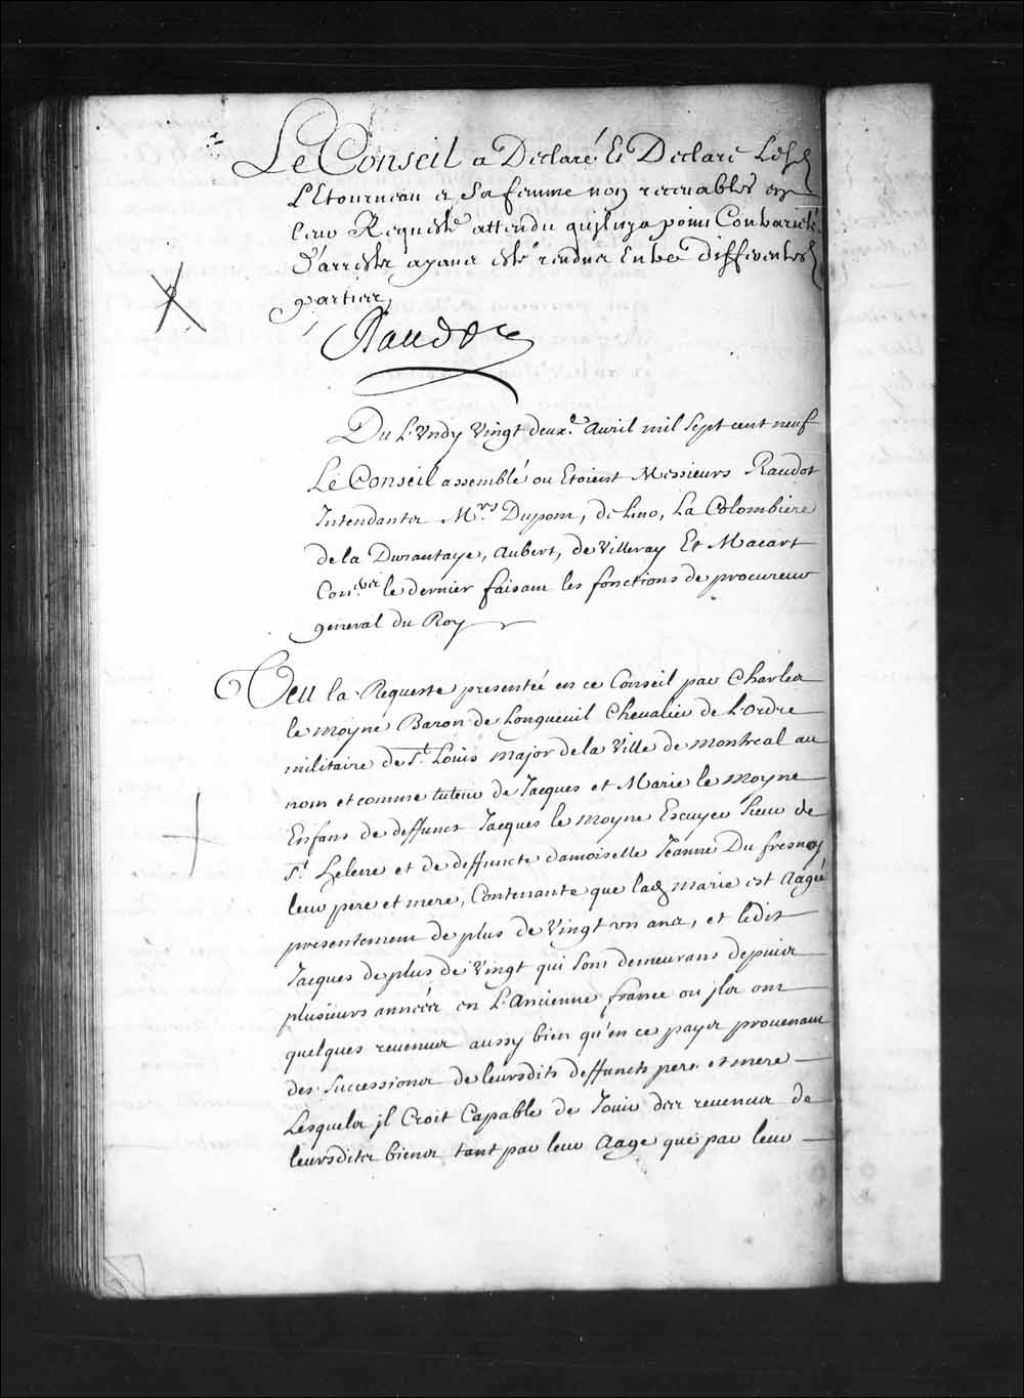 Le Conseil a Declaré Et Declare Lesd
L'Etourneau et sa femme non recevables en
leur Requeste attendu qu'il n'y a point Contrarieté
D'arrests ayant esté rendus Entre differentes
parties,
Raudot
Du Lundy Vingt deuxe. Avril mil Sept cent neuf
Le Conseil assemblé ou Etoient Messieurs Raudot
Intendants Mrs Dupont, de Lino, La Colombiere
de la Durantaye, Aubert, de Villeray Et Macart
Coners le dernier faisant les fonctions de procureur
general du Roy
Veu la Requeste presenteé en ce Conseil par Charles
le moyne Baron de Longueuil Chevalier de L'ordre
militaire de St. Louis major de la Ville de montreal au
nom et comme tuteur de Jacques et Marie le moyne
Enfans de deffunct Jacques le moyne Escuyer Sieur de
St. Helene et de deffuncte damoiselle Jeanne Du fresnoy
leur pere et mere, Contenante que lad marie est Aageé
presentement de plus de Vingt un ans, et ledit
Jacques de plus de Vingt qui sont demeurans depuis
plusieurs anneés en L'Ancienne france ou jls ont
quelques revenus aussy bien qu'en ces pays provenant
des Successions de leursdits deffuncts pere et mere
Lesquels jl Croit Capable de Jouir des revenus de
leursdits biens tant par leur Aage que par leur